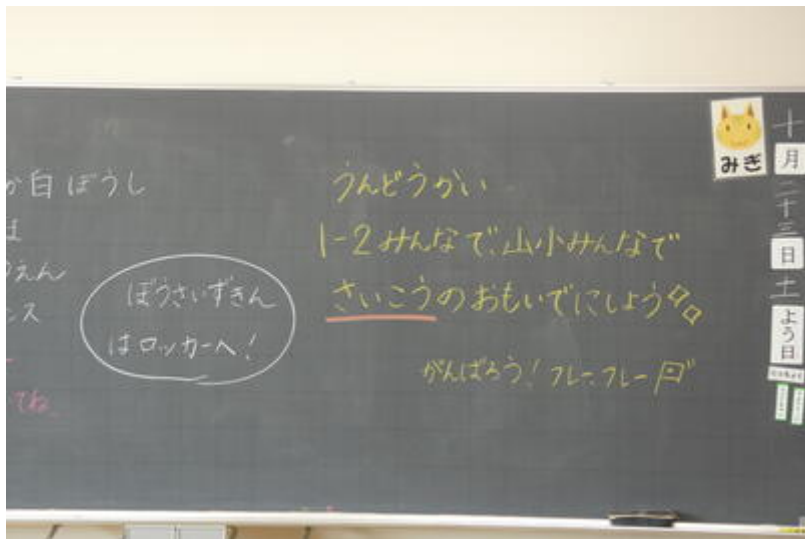 白ぼうし
ぼうさいずきん
はロッカーへ!
てね
うんどうかい
1-2みんなで、山小みんなで
さいこうのおもいでにしよう
がんばろう!フレーフレー
みぎ
十
月
二十三
日
土
よう日